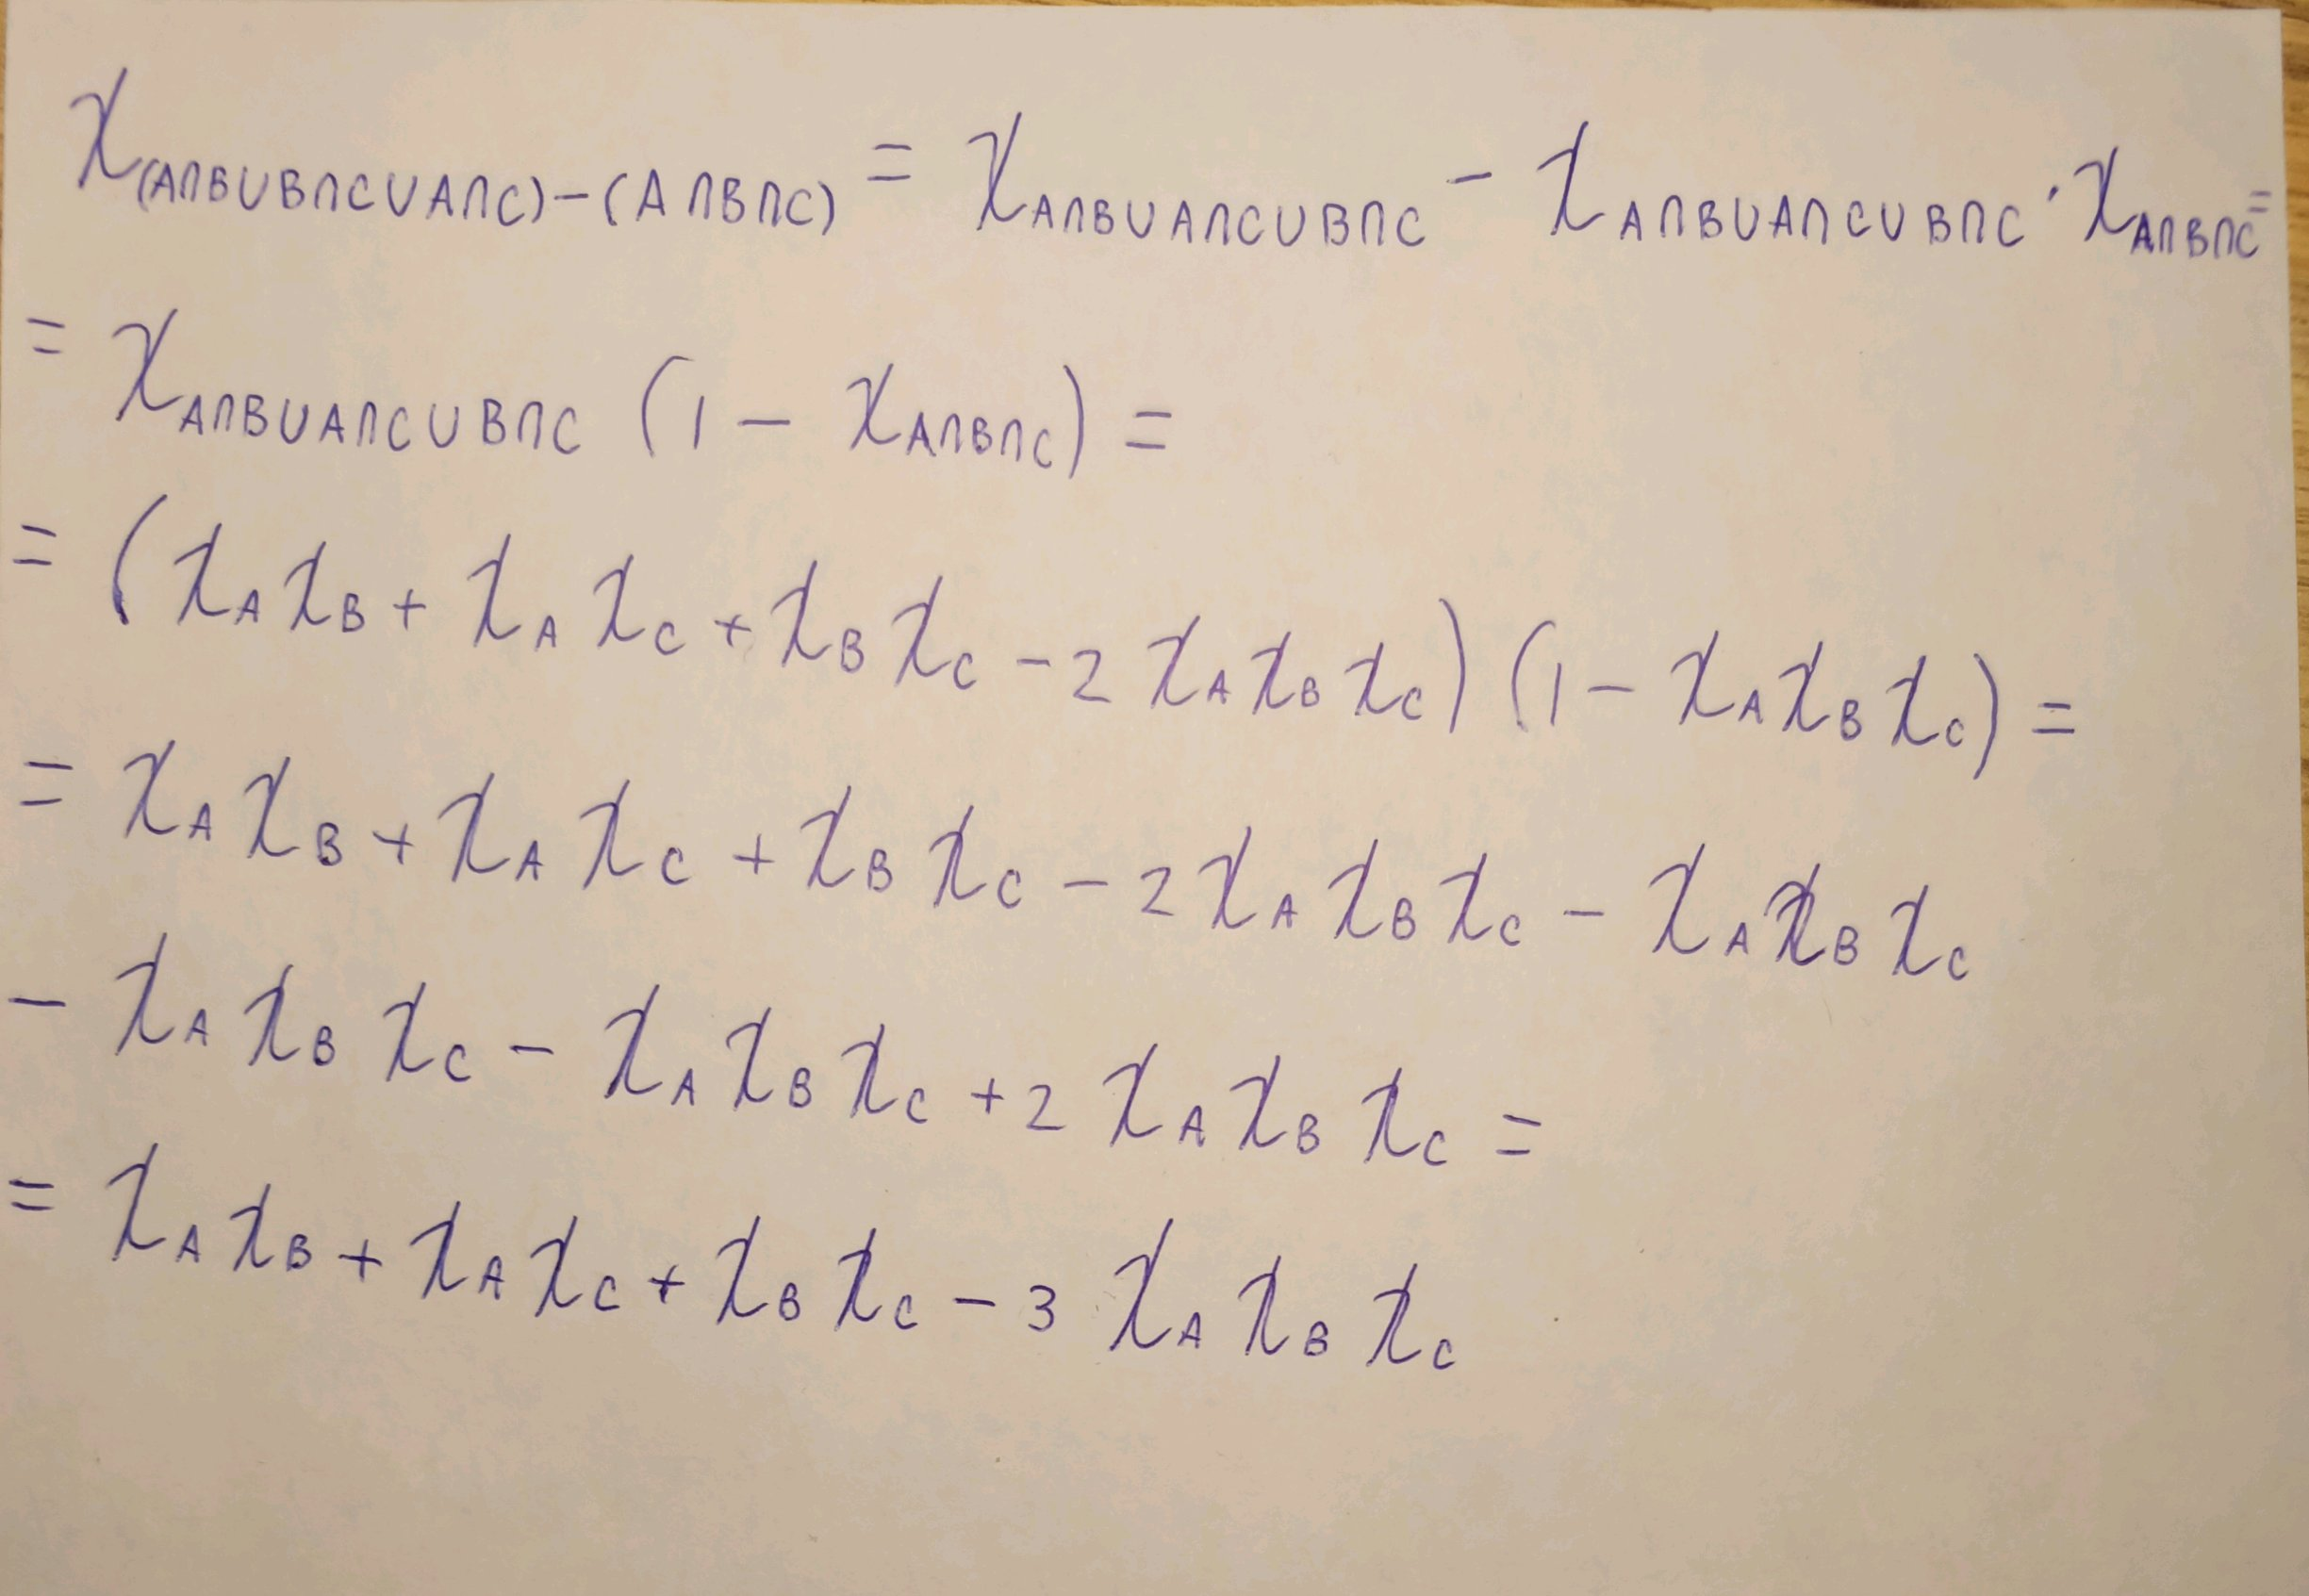 χ_(A∩B∪B∩C∪A∩C)−(A∩B∩C) = χ_A∩B∪A∩C∪B∩C − χ_A∩B∪A∩C∪B∩C · χ_A∩B∩C =
= χ_A∩B∪A∩C∪B∩C (1 − χ_A∩B∩C) =
= (χ_A χ_B + χ_A χ_C + χ_B χ_C − 2 χ_A χ_B χ_C) (1 − χ_A χ_B χ_C) =
= χ_A χ_B + χ_A χ_C + χ_B χ_C − 2 χ_A χ_B χ_C − χ_A χ_B χ_C
− χ_A χ_B χ_C − χ_A χ_B χ_C + 2 χ_A χ_B χ_C =
= χ_A χ_B + χ_A χ_C + χ_B χ_C − 3 χ_A χ_B χ_C